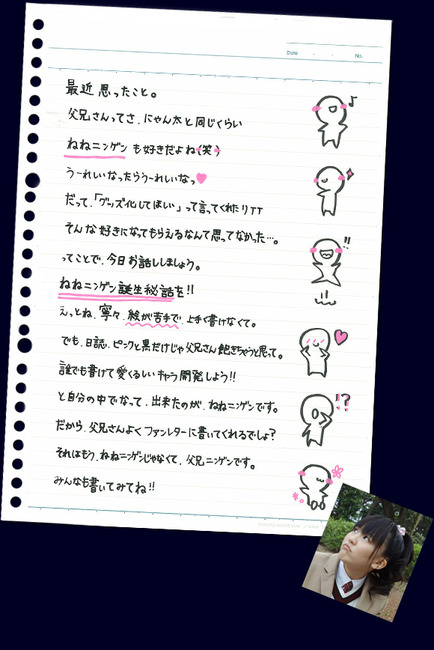 Date ・ ・ No.
最近 思ったこと。
父兄さんってさ、にゃん太と同じくらい
ねねニンゲン も好きだよね(笑う
うーれしいなったらうーれしいなっ♥
だって、「グッズ化してほしい」って言ってくれたりTT
そんな好きになってもらえるなんて思ってなかった…。
ってことで、今日お話ししましょう。
ねねニンゲン誕生秘話を!!
えっとね、寧々、絵が苦手で、上手く書けなくて。
でも、日誌、ピンクと黒だけじゃ父兄さん飽きちゃうと思って。
誰でも書けて愛くるしいキャラ開発しよう!!
と自分の中でなって、出来たのが、ねねニンゲンです。
だから、父兄さんよくファンレターに書いてくれるでしょ?
それはもう、ねねニンゲンじゃなくて、父兄ニンゲンです。
みんなも書いてみてね!!
♪
!!
!?